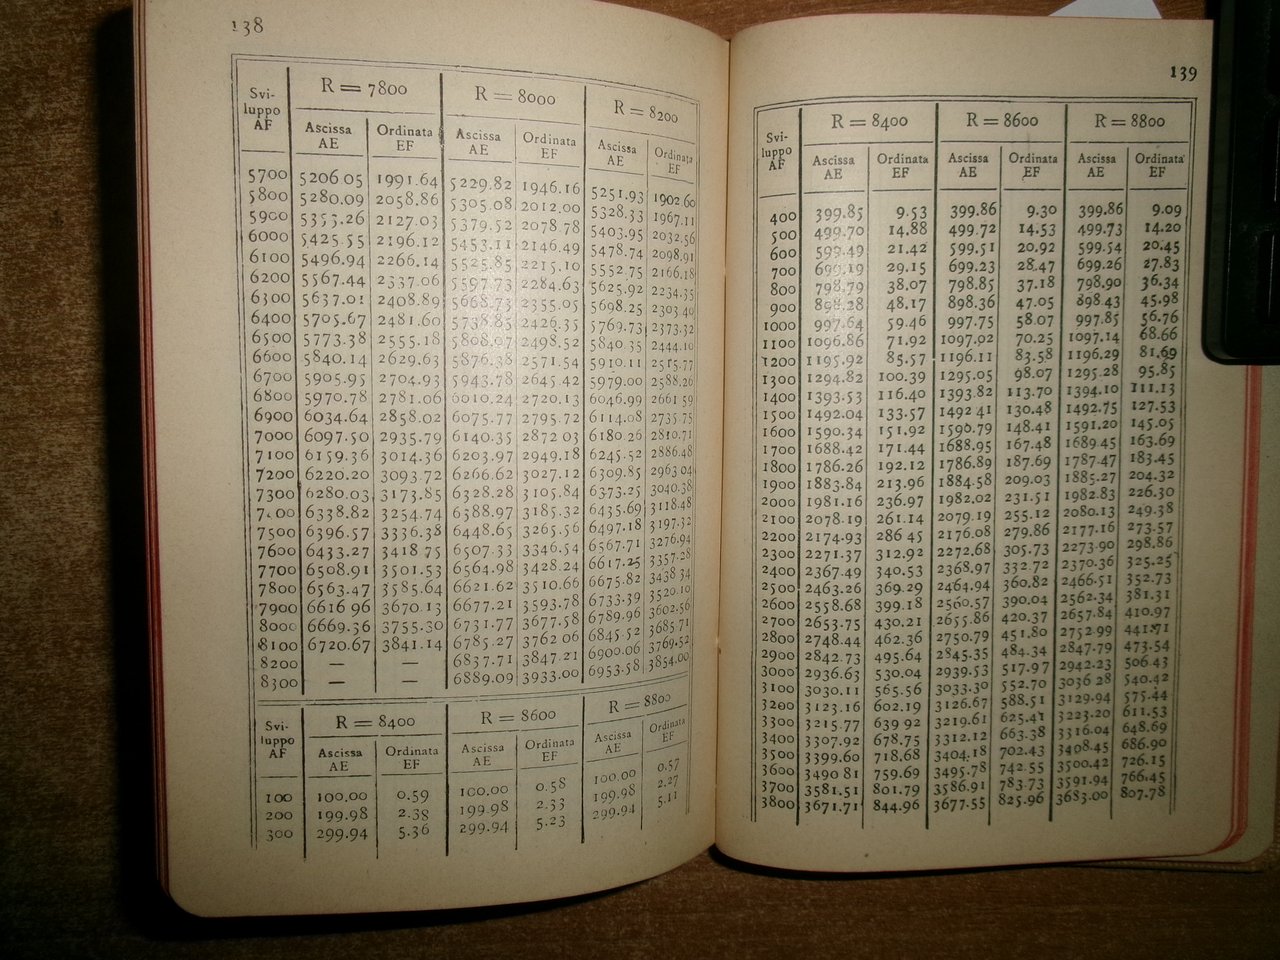 138
Svi-
luppo
AF
R = 7800 R = 8000 R = 8200
Ascissa AE Ordinata EF Ascissa AE Ordinata EF Ascissa AE Ordinata EF
5700 5206 05 1991.64 5229.82 1946.16 5251.93 1902 60
5800 5280.09 2058.86 5305.08 2012.00 5328.33 1967.11
5900 5353.26 2127.03 5379.52 2078.78 5403.95 2032.56
6000 5425 55 2196.12 5453.11 2146.49 5478.74 2098.91
6100 5496.94 2266.14 5525.85 2215.10 5552.75 2166.18
6200 5567.44 2337.06 5597.73 2284.63 5625.92 2234.35
6300 5637.01 2408.89 5668.73 2355.05 5698.25 2303 40
6400 5705.67 2481.60 5738.85 2426.35 5769.73 2373.32
6500 5773.38 2555.18 5808.07 2498.52 5840.35 2444.10
6600 5840.14 2629.63 5876.38 2571.54 5910.11
6700 5905.95 2704.93 5943.78 2645.42 5979.00 2588.26
6800 5970.78 2781.06 6010.24 2720.13 6046.99 2661 59
6900 6034.64 2858.02 6075.77 2795.72 6114.08 2735 75
7000 6097.50 2935.79 6140.35 2872 03 6180 26 2810.71
7100 6159.36 3014.36 6203.97 2949.18 6245.52 2886.48
7200 6220.20 3093.72 6266.62 3027.12 6309.85 2963 04
7300 6280.03 3173.85 6328.28 3105.84 6373.25 3040.38
6338.82 3254.74 6388.97 3185.32 6435.69 3118.48
7500 6396.57 3336.38 6448.65 3265.56 6497.18 3197.32
7600 6433.27 3418 75 6507.33 3346.54 6567.71 3276.94
7700 6508.91 3501.53 6564.98 3428.24 6617.25 3357.28
7800 6563.47 3585.64 6621.62 3510.66 6675.82 3438 34
7900 6616 96 3670.13 6677.21 3593.78 6733.39 3520.10
8000 6669.36 3755.30 6731.77 3677.58 6789.96 3602.56
8100 6720.67 3841.14 6785.27 3762 06 6845 52 3685.71
8200 — — 6837.71 3847.21 6900.06 3769.52
8300 — — 6889.09 3933.00 6953.58 3854.00
Svi-
luppo
AF
R = 8400 R = 8600 R = 8800
Ascissa AE Ordinata EF Ascissa AE Ordinata EF Ascissa AE Ordinata EF
100 100.00 0.59 100.00 0.58 100.00 0.57
200 199.98 2.38 199.98 2.33 199.98 2.27
300 299.94 5.36 299.94 5.23 299.94 5.11
139
Svi-
luppo
AF
R = 8400 R = 8600 R = 8800
Ascissa AE Ordinata EF Ascissa AE Ordinata EF Ascissa AE Ordinata EF
400 399.85 9.53 399.86 9.30 399.86 9.09
500 499.70 14.88 499.72 14.53 499.73 14.20
600 599.49 21.42 599.51 20.92 599.54 20.45
700 699.19 29.15 699.23 28.47 699.26 27.83
800 798.79 38.07 798.85 37.18 798.90 36.34
900 898.28 48.17 898.36 47.05 898.43 45.98
1000 997.64 59.46 997.75 58.07 997.85 56.76
1100 1096.86 71.92 1097.02 70.25 1097.14 68.66
1200 1195.92 85.57 1196.11 83.58 1196.29 81.69
1300 1294.82 100.39 1295.05 98.07 1295.28 95.85
1400 1393.53 116.40 1393.82 113.70 1394.10 111.13
1500 1492.04 133.57 1492 41 130.48 1492.75 127.53
1600 1590.34 151.92 1590.79 148.41 1591.20 145.05
1700 1688.42 171.44 1688.95 167.48 1689 45 163.69
1800 1786.26 192.12 1786.89 187.69 1787.47 183.45
1900 1883.84 213.96 1884.58 209.03 1885.27 204.32
2000 1981.16 236.97 1982.02 231.51 1982.83 226.30
2100 2078.19 261.14 2079.19 255.12 2080.13 249.38
2200 2174.93 286 45 2176.08 279.86 2177.16 273.57
2300 2271.37 312.92 2272.68 305.73 2273.90 298.86
2400 2367.49 340.53 2368.97 332.72 2370.36 325.25
2500 2463.26 369.29 2464.94 360.82 2466.51 352.73
2600 2558.68 399.18 2560.57 390.04 2562.34 381.31
2700 2653.75 430.21 2655.86 420.37 2657.84 410.97
2800 2748.44 462.36 2750.79 451.80 2752.99 441.71
2900 2842.73 495.64 2845.35 484.34 2847.79 473.54
3000 2936.63 530.04 2939.53 517.97 2942.23 506.43
3100 3030.11 565.56 3033.30 552.70 3036 28 540.42
3200 3123.16 602.19 3126.67 588.51 3129.94 575.44
3300 3215.77 639 92 3219.61 625.41 3223.20 611.53
3400 3307.92 678.75 3312.12 663.38 3316.04 648.69
3500 3399.60 718.68 3404.18 702.43 3408.45 686.90
3600 3490 81 759.69 3495.78 742.55 3500.42 726.15
3700 3581.51 801.79 3586.91 783.73 3591.94 766.45
3800 3671.71 844.96 3677.55 825.96 3683.00 807.78